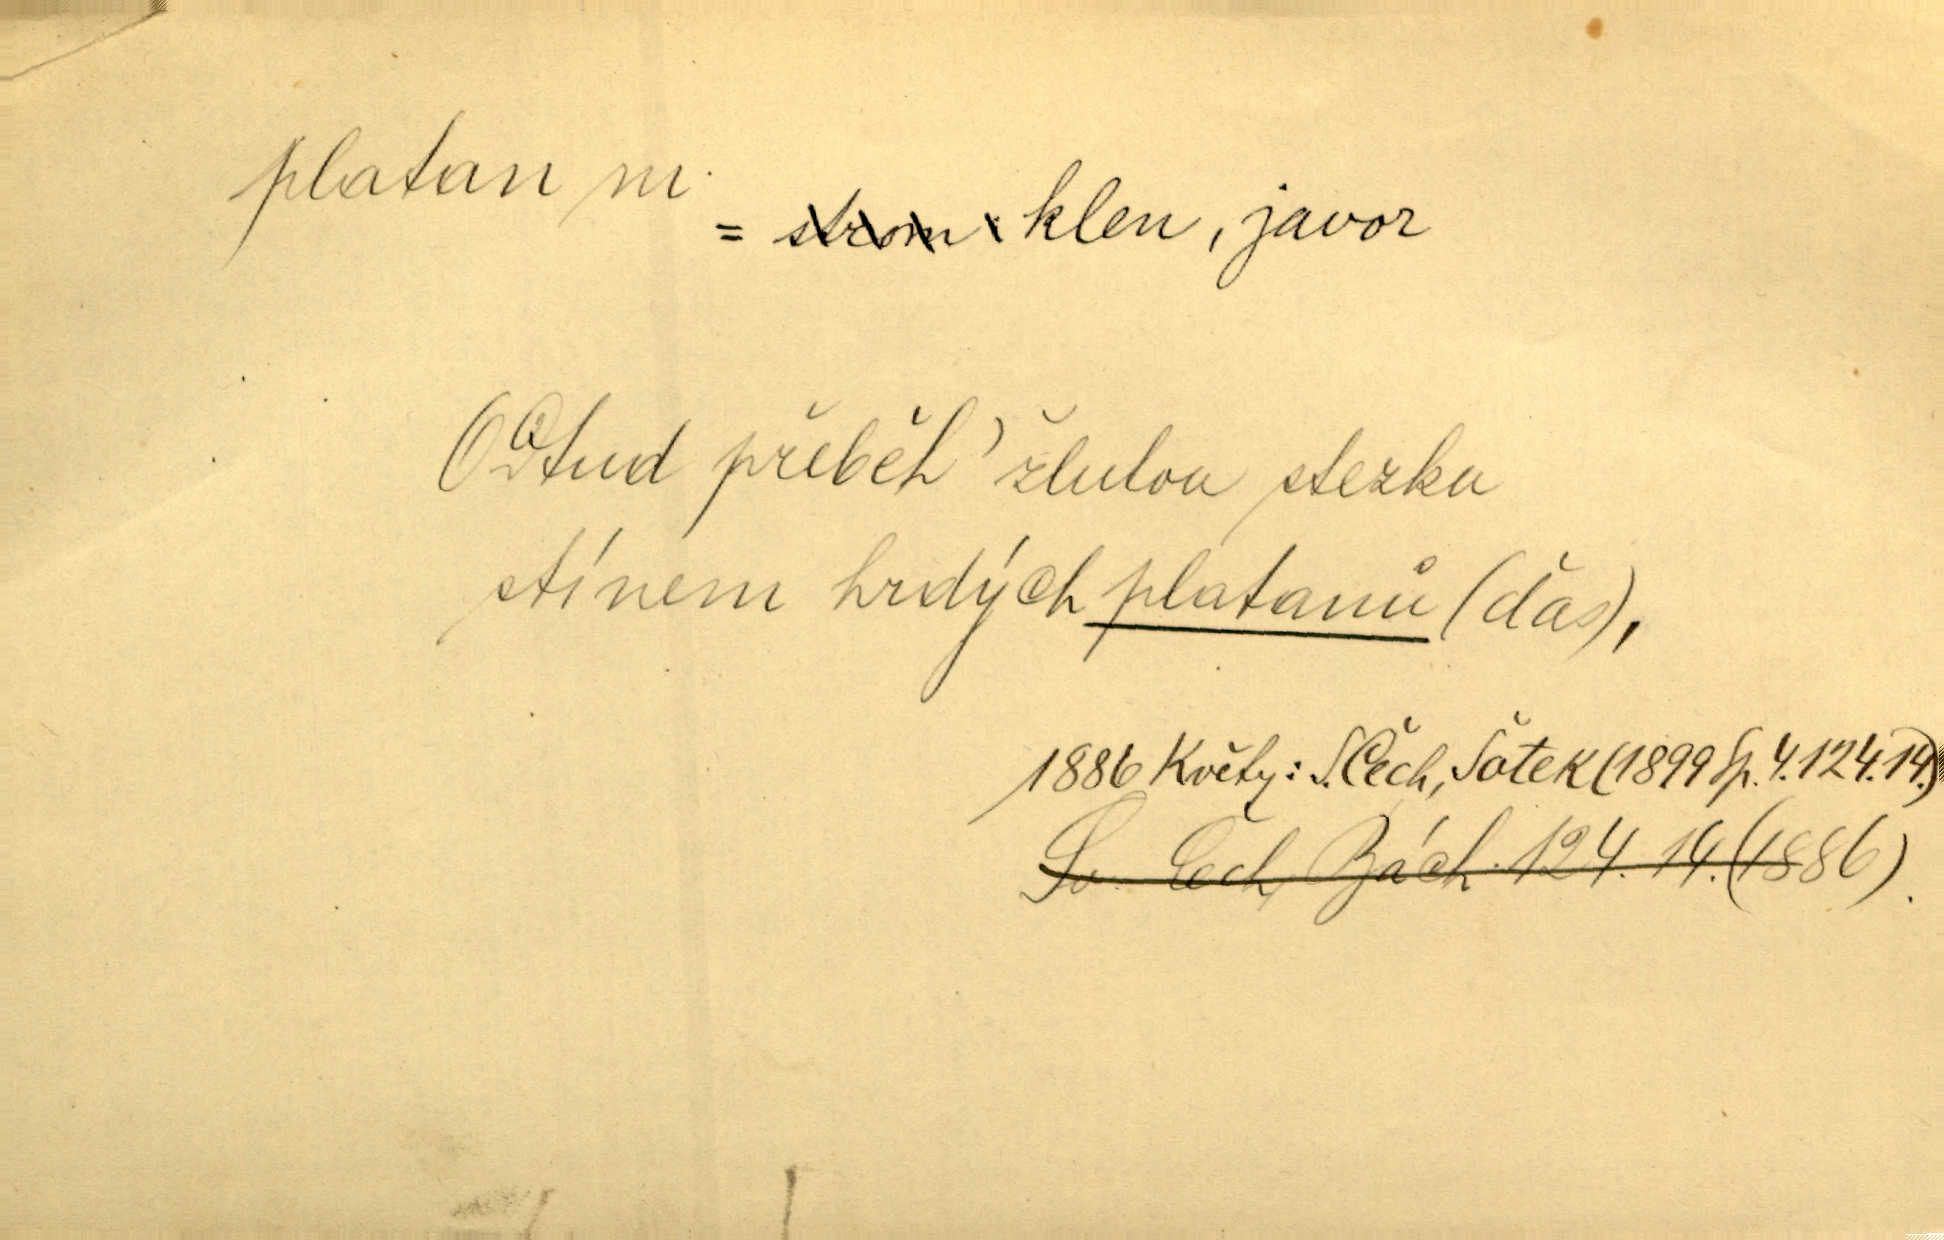 platan m.
= strom : klen, javor
Odtud přeběh' žlutou stezku
stínem hrdých platanů (ďas),
1886 Květy: S. Čech, Šotek (1899 Sp. 4.124.14.)
Sv. Čech, Bách. 124. 14. (1886).